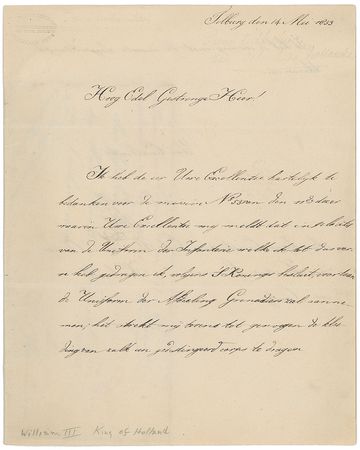 Tilburg den 14 Mei 1833
Hoog Edel Gestrenge Heer!
Ik heb de eer Uwe Excellentie hartelijk te
bedanken voor de missive No 33 van den
waarin Uwe Excellentie my meldt dat in plaats
van de Uniform der Infanterie welke ik tot dus ver
heb gedragen ik, volgens S Konings besluit, voortaan
de Uniform der Afdeling Grenadiers zal aanne
men; het strekt my tevens tot genoegen de klee
ding van zulk een corps te dragen
William III King of Holland